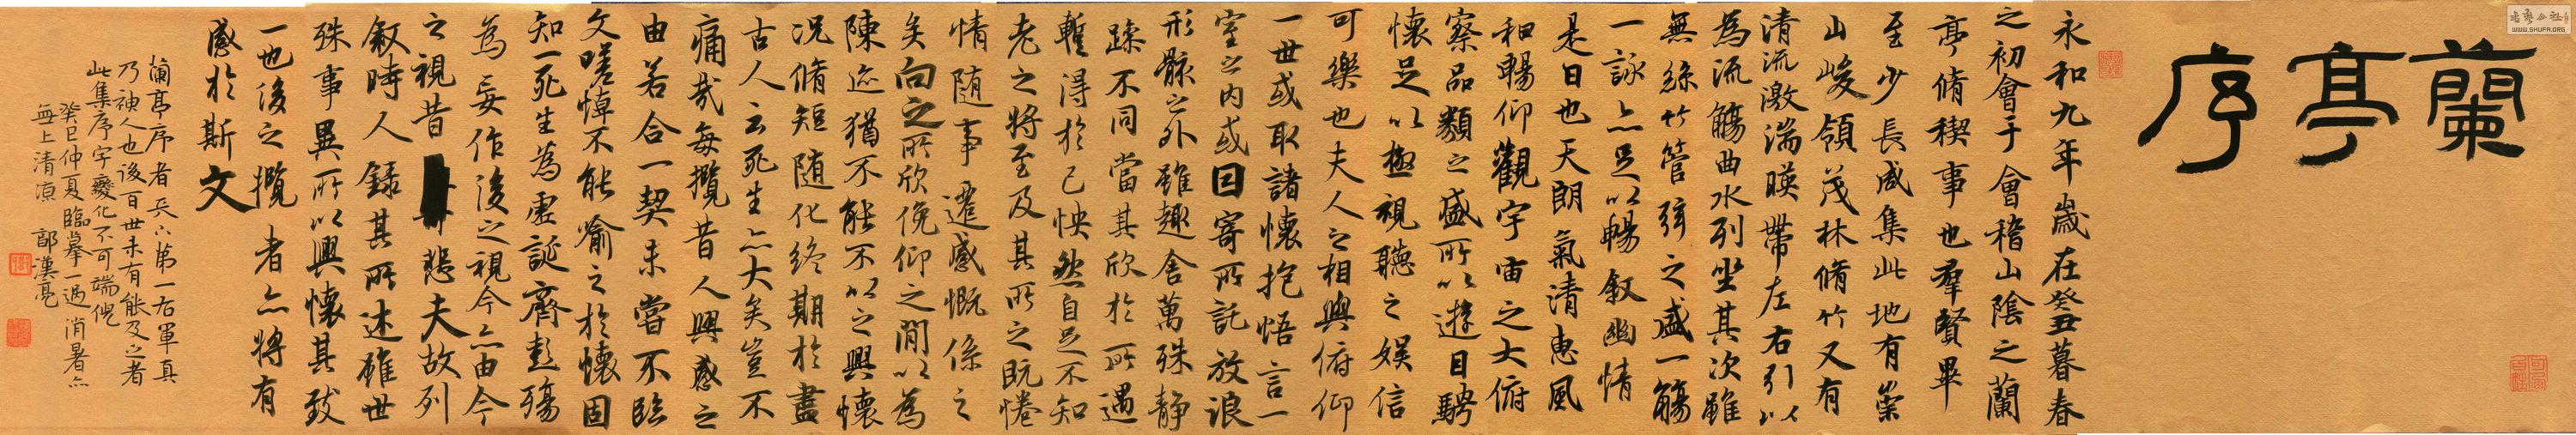 蘭亭序
永和九年歲在癸丑暮春
之初會于會稽山陰之蘭
亭脩稧事也羣賢畢
至少長咸集此地有崇
山峻領茂林脩竹又有
清流激湍暎帶左右引以
為流觴曲水列坐其次雖
無絲竹管弦之盛一觴
一詠亦足以暢叙幽情
是日也天朗氣清惠風
和暢仰觀宇宙之大俯
察品類之盛所以遊目騁
懷足以極視聽之娛信
可樂也夫人之相與俯仰
一世或取諸懷抱悟言一
室之內或因寄所託放浪
形骸之外雖趣舍萬殊静
躁不同當其欣於所遇
暫得於己怏然自足不知
老之將至及其所之既惓
情隨事遷感慨係之
矣向之所欣俛仰之閒以為
陳迹猶不能不以之興懷
况脩短隨化終期於盡
古人云死生亦大矣豈不
痛哉每攬昔人興感之
由若合一契未嘗不臨
文嗟悼不能喻之於懷固
知一死生為虛誕齊彭殤
為妄作後之視今亦由今
之視昔悲夫故列
叙時人錄其所述雖世
殊事異所以興懷其致
一也後之攬者亦將有
感於斯文
蘭亭序者天下第一右軍真
乃神人也後百世未有能及之者
此集序字變化不可端倪
癸巳仲夏臨摹一過消暑亦
無上清凉 郭漢亮
WWW.SHUFA.ORG